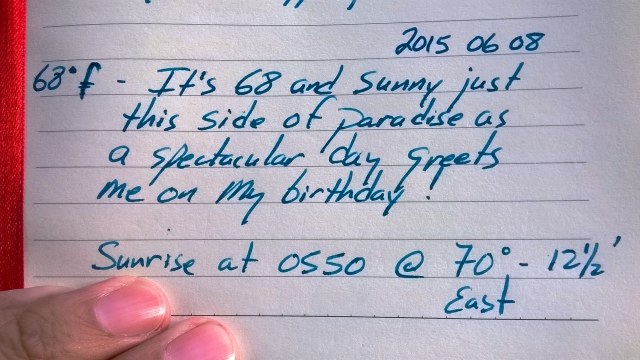 2015 06 08
68°f - It's 68 and sunny just
this side of paradise as
a spectacular day greets
me on my birthday.
Sunrise at 0550 @ 70° - 12½'
East